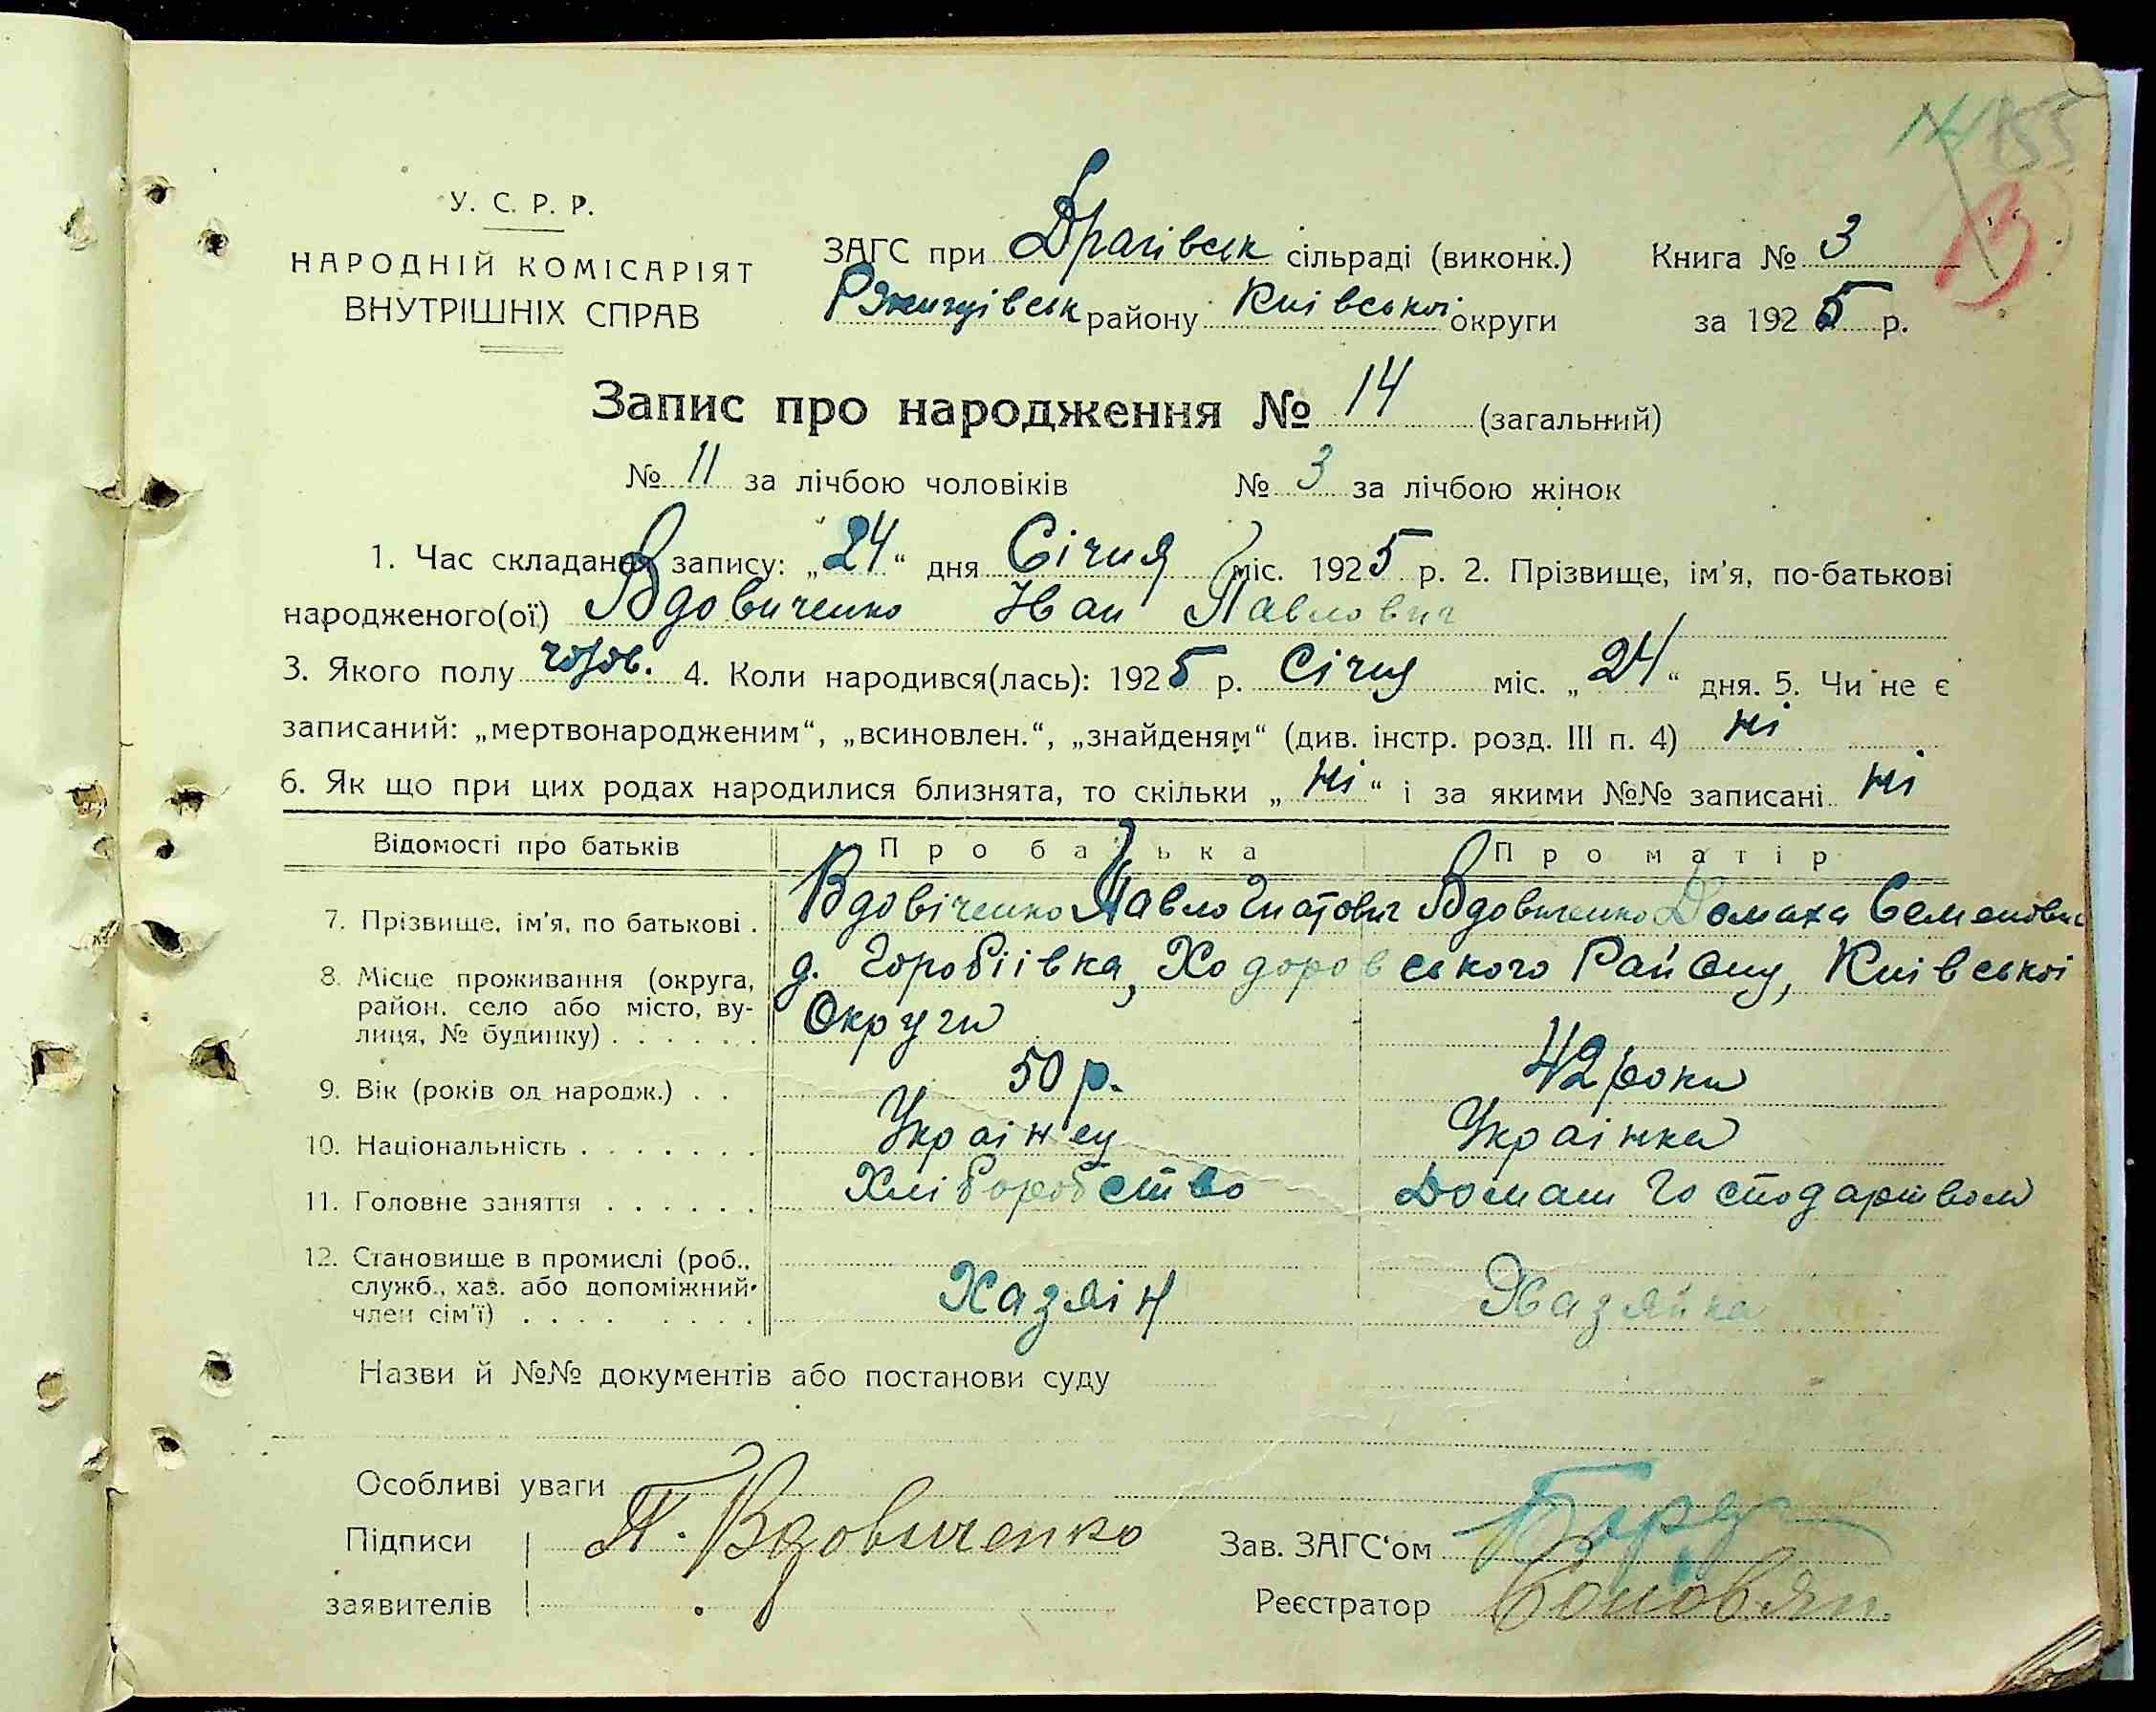 155
13
У. С. Р. Р.
НАРОДНІЙ КОМІСАРІЯТ
ВНУТРІШНІХ СПРАВ
ЗАГС при Драчівськ сільраді (виконк.) Книга № 3
Ржищівськ району Київської округи за 1925 р.
Запис про народження № 14 (загальний)
№ 11 за лічбою чоловіків № 3 за лічбою жінок
1. Час складання запису: „24“ дня Січня міс. 1925 р. 2. Прізвище, ім'я, по-батькові
народженого(ої) Вдовиченко Іван Павлович
3. Якого полу чолов. 4. Коли народився(лась): 1925 р. Січня міс. „24“ дня. 5. Чи не є
записаний: „мертвонародженим“, „всиновлен.“, „знайденям“ (див. інстр. розд. III п. 4) ні
6. Як що при цих родах народилися близнята, то скільки „ні“ і за якими №№ записані ні
Відомості про батьків Про батька Про матір
7. Прізвище, ім'я, по батькові . Вдовіченко Павло Гнатович Вдовиченко Домаха Семеновна
8. Місце проживання (округа, район, село або місто, вулиця, № будинку) . . . . . . д. Горобіївка, Ходоровського Району, Київської
Округи
9. Вік (років од народж.) . . 50 р. 42 роки
10. Національність . . . . . . . Українец Українка
11. Головне заняття . . . . . . Хліборобство Домаш Господарством
12. Становище в промислі (роб., служб., хаз. або допоміжний член сім'ї) . . . . . . . . Хазяін Хазяйка
Назви й №№ документів або постанови суду
Особливі уваги
Підписи П. Вдовиченко Зав. ЗАГС‘ом
заявителів Реєстратор